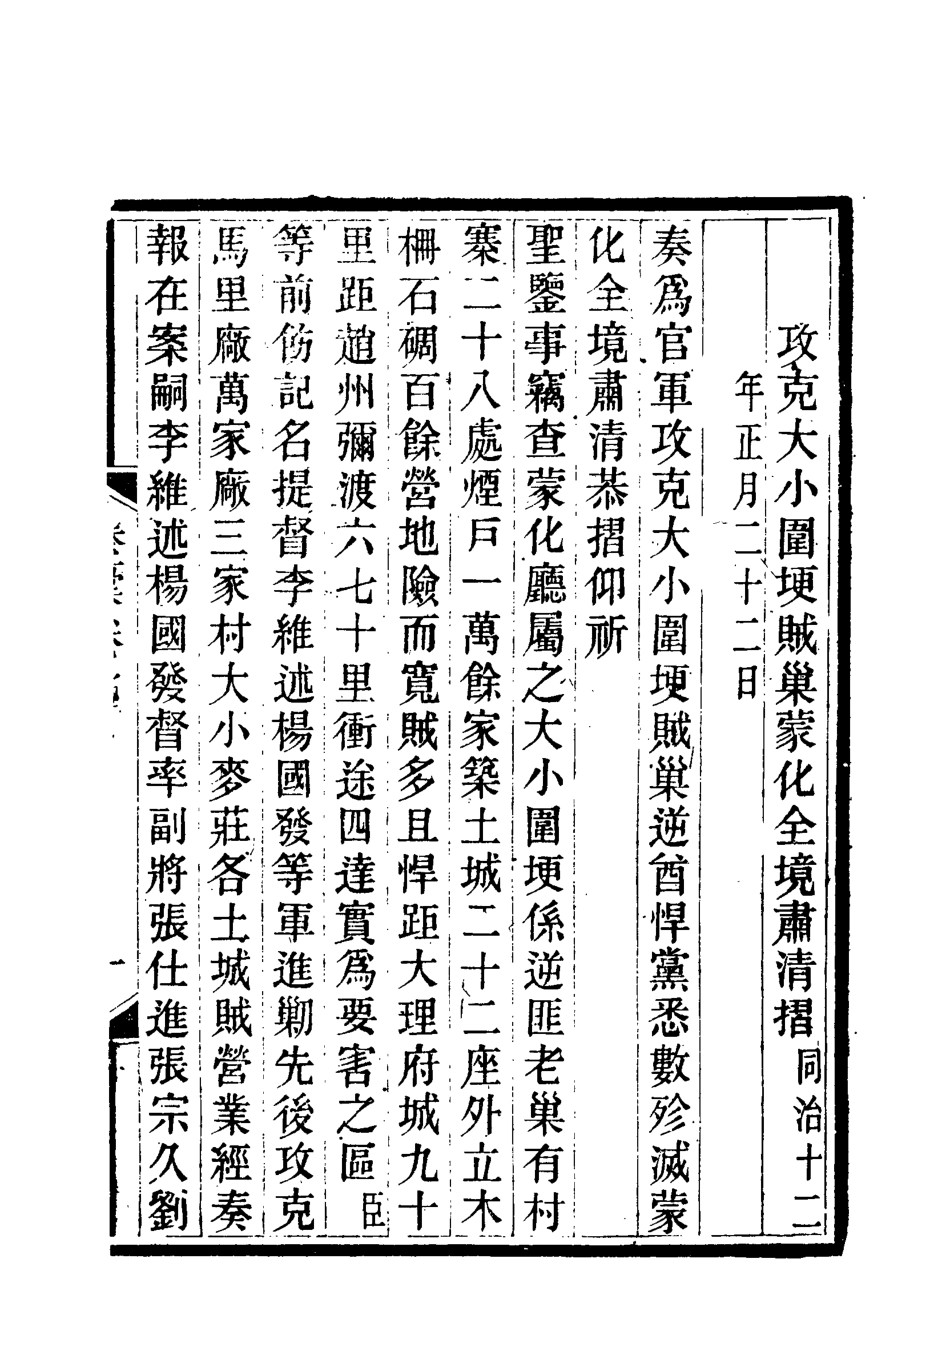 攻克大小圍埂賊巢蒙化全境肅清摺同治十二
年正月二十二日
奏爲官軍攻克大小圍埂賊巢逆酋悍黨悉數殄滅蒙
化全境肅清恭摺仰祈
聖鑒事竊查蒙化廳屬之大小圍埂係逆匪老巢有村
寨二十八處煙戸一萬餘家築土城二十二座外立木
柵石碉百餘營地險而寬賊多且悍距大理府城九十
里距趙州彌渡六七十里衝途四達實爲要害之區臣
等前飭記名提督李維述楊國發等軍進勦先後攻克
馬里廠萬家廠三家村大小麥莊各土城賊營業經奏
報在案嗣李維述楊國發督率副將張仕進張宗久劉